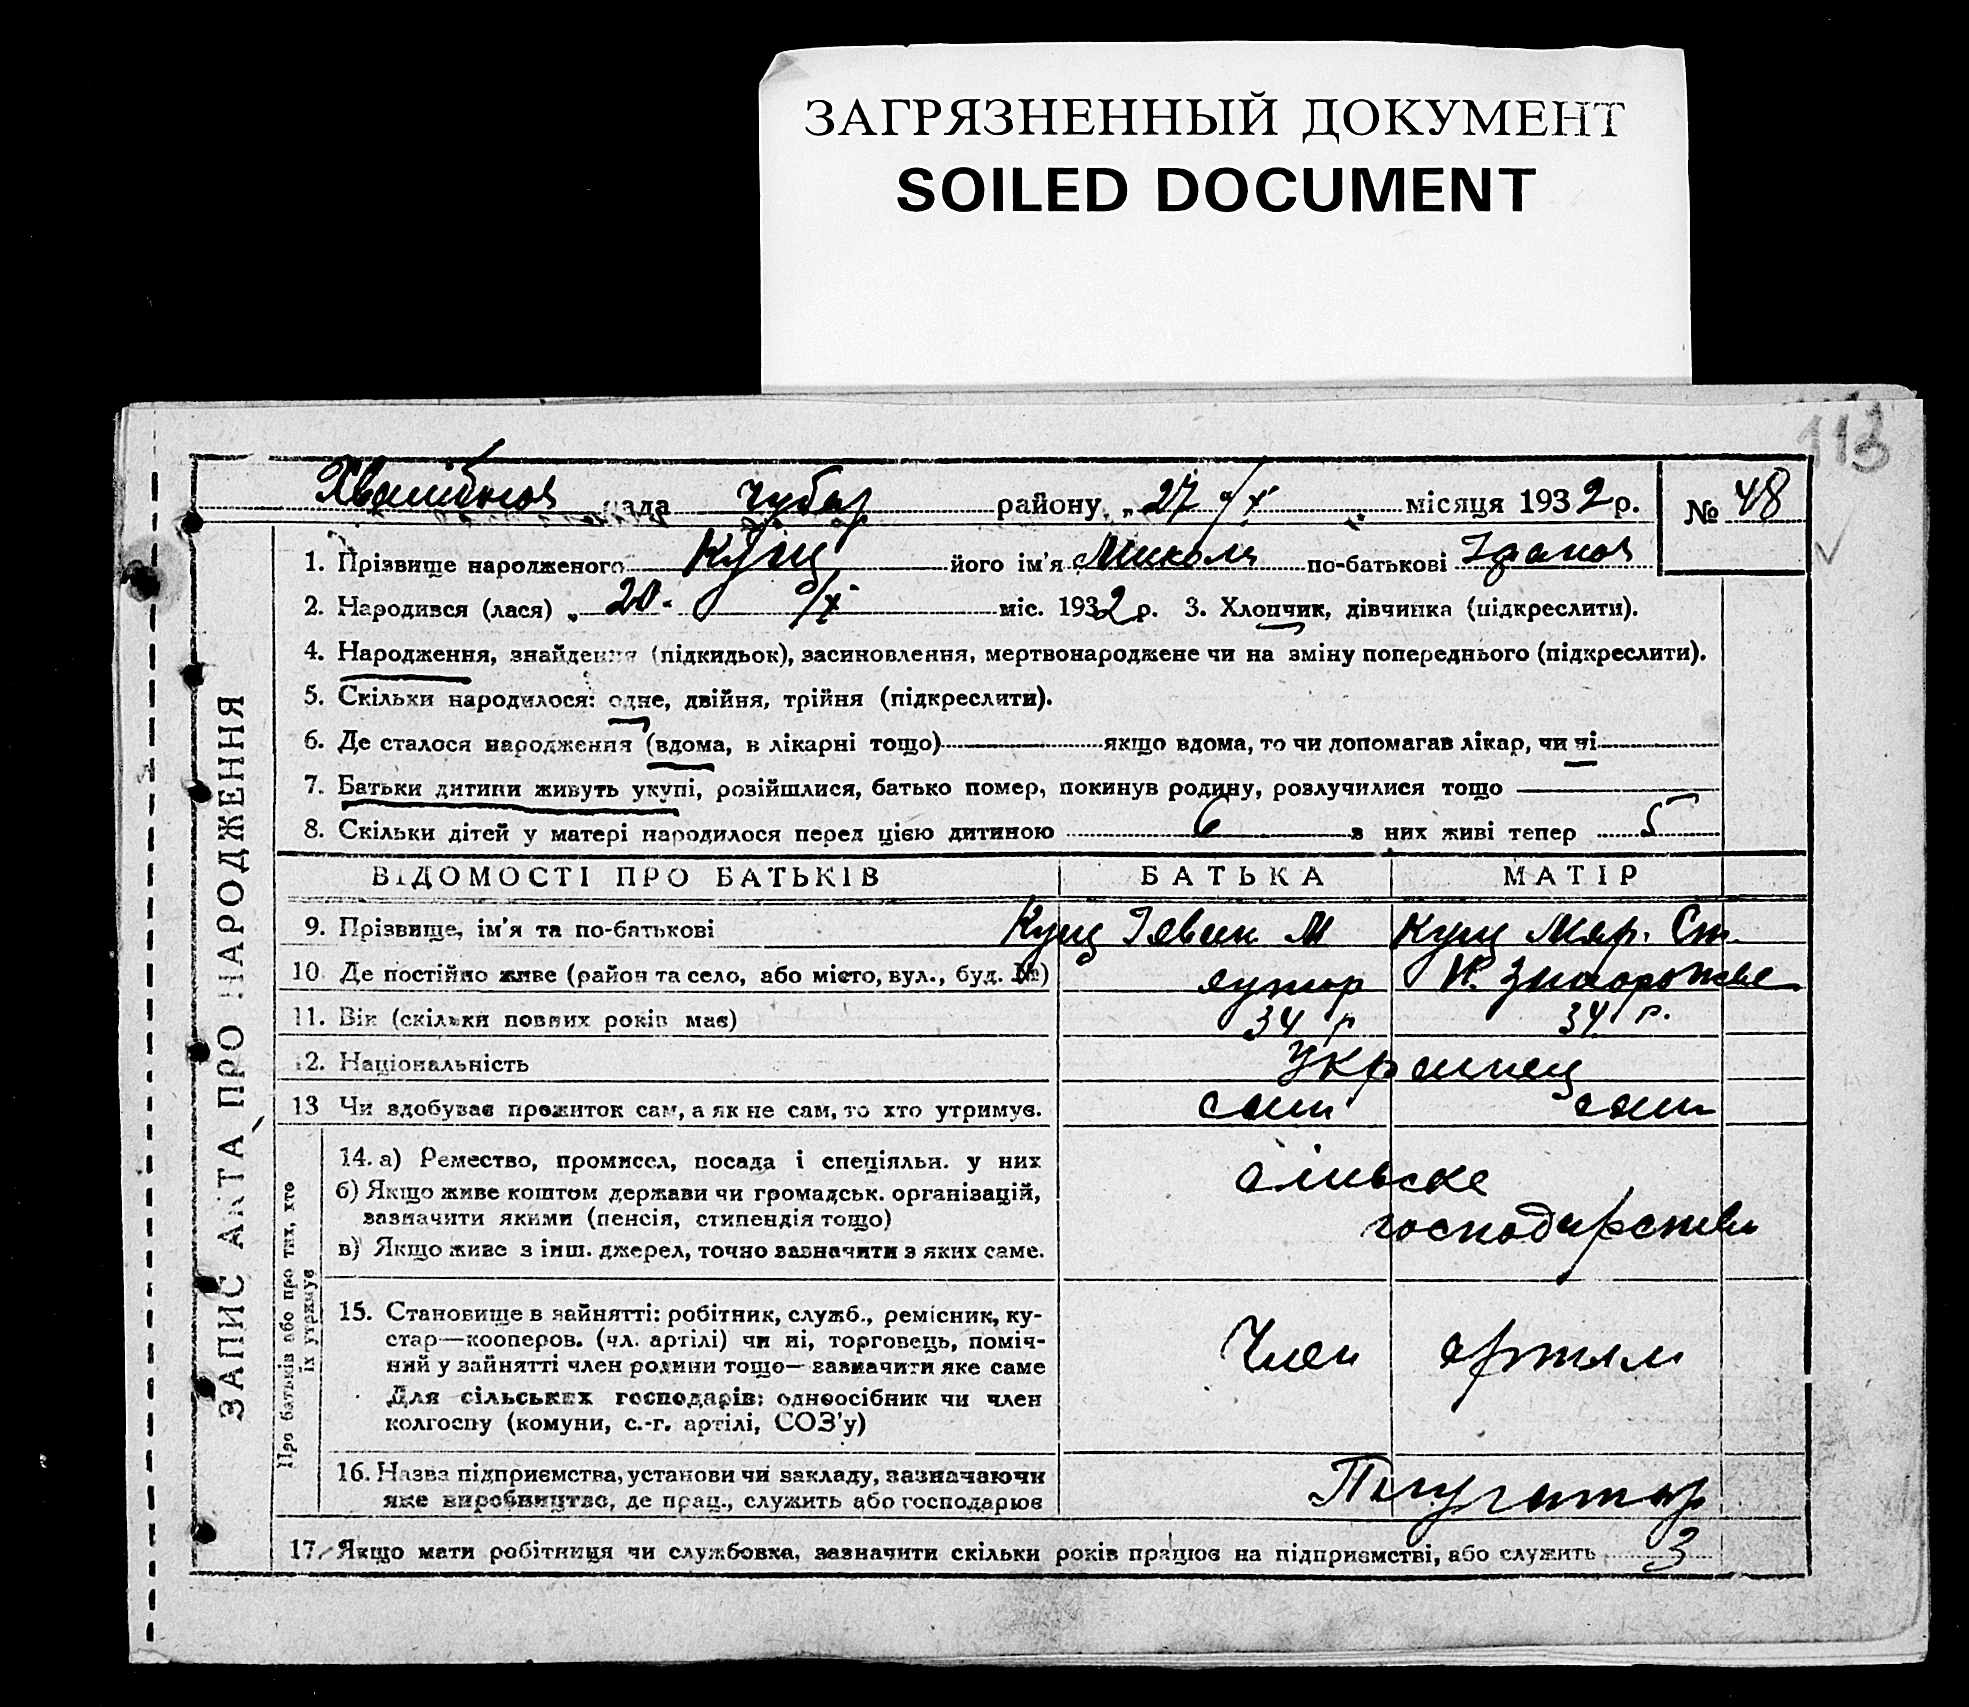 ЗАГРЯЗНЕННЫЙ ДОКУМЕНТ
SOILED DOCUMENT
113
рада Чубар району „27 о/х місяця 1932 р. № 48
1. Прізвище народженого Кущ його ім'я Микола по-батькові Іванов
2. Народився (лася) „20. о/х міс. 1932 р. 3. Хлопчик, дівчинка (підкреслити).
4. Народження, знайдення (підкидьок), засиновлення, мертвонароджене чи на зміну попереднього (підкреслити).
5. Скільки народилося: одне, двійня, трійня (підкреслити).
6. Де сталося народження (вдома, в лікарні тощо) якщо вдома, то чи допомагав лікар, чи ні
7. Батьки дитини живуть укупі, розійшлися, батько помер, покинув родину, розлучилися тощо
8. Скільки дітей у матері народилося перед цією дитиною 6 з них живі тепер 5
ВІДОМОСТІ ПРО БАТЬКІВ БАТЬКА МАТІР
9. Прізвище, ім'я та по-батькові Кущ Іван М Кущ Мар. Ст.
10. Де постійно живе (район та село, або місто, вул., буд. №) хутор Н. Запорожье
11. Вік (скільки повних років має) 34 р 34 р.
12. Національність Українец
13 Чи здобував прожиток сам, а як не сам, то хто утримує. сам сам
14. а) Ремество, промисел, посада і спеціяльн. у них сільске
б) Якщо живе коштом держави чи громадськ. організацій,
зазначити якими (пенсія, стипендія тощо) господарство
в) Якщо живе з інш. джерел, точно зазначити з яких саме.
15. Становище в зайнятті: робітник, служб., ремісник, ку-
стар—кооперов. (чл. артілі) чи ні, торговець, поміч-
ний у зайнятті член родини тощо—зазначити яке саме Член артили
Для сільських господарів: одноосібник чи член
колгоспу (комуни, с.-г. артілі, СОЗ'у)
16. Назва підприємства, установи чи закладу, зазначаючи
яке виробництво, де прац., служить або господарює Плугатар
17. Якщо мати робітниця чи службовка, зазначити скільки років працює на підприємстві, або служить 3
ЗАПИС АКТА ПРО НАРОДЖЕННЯ
Про батьків або про тих, хто
їх утримує